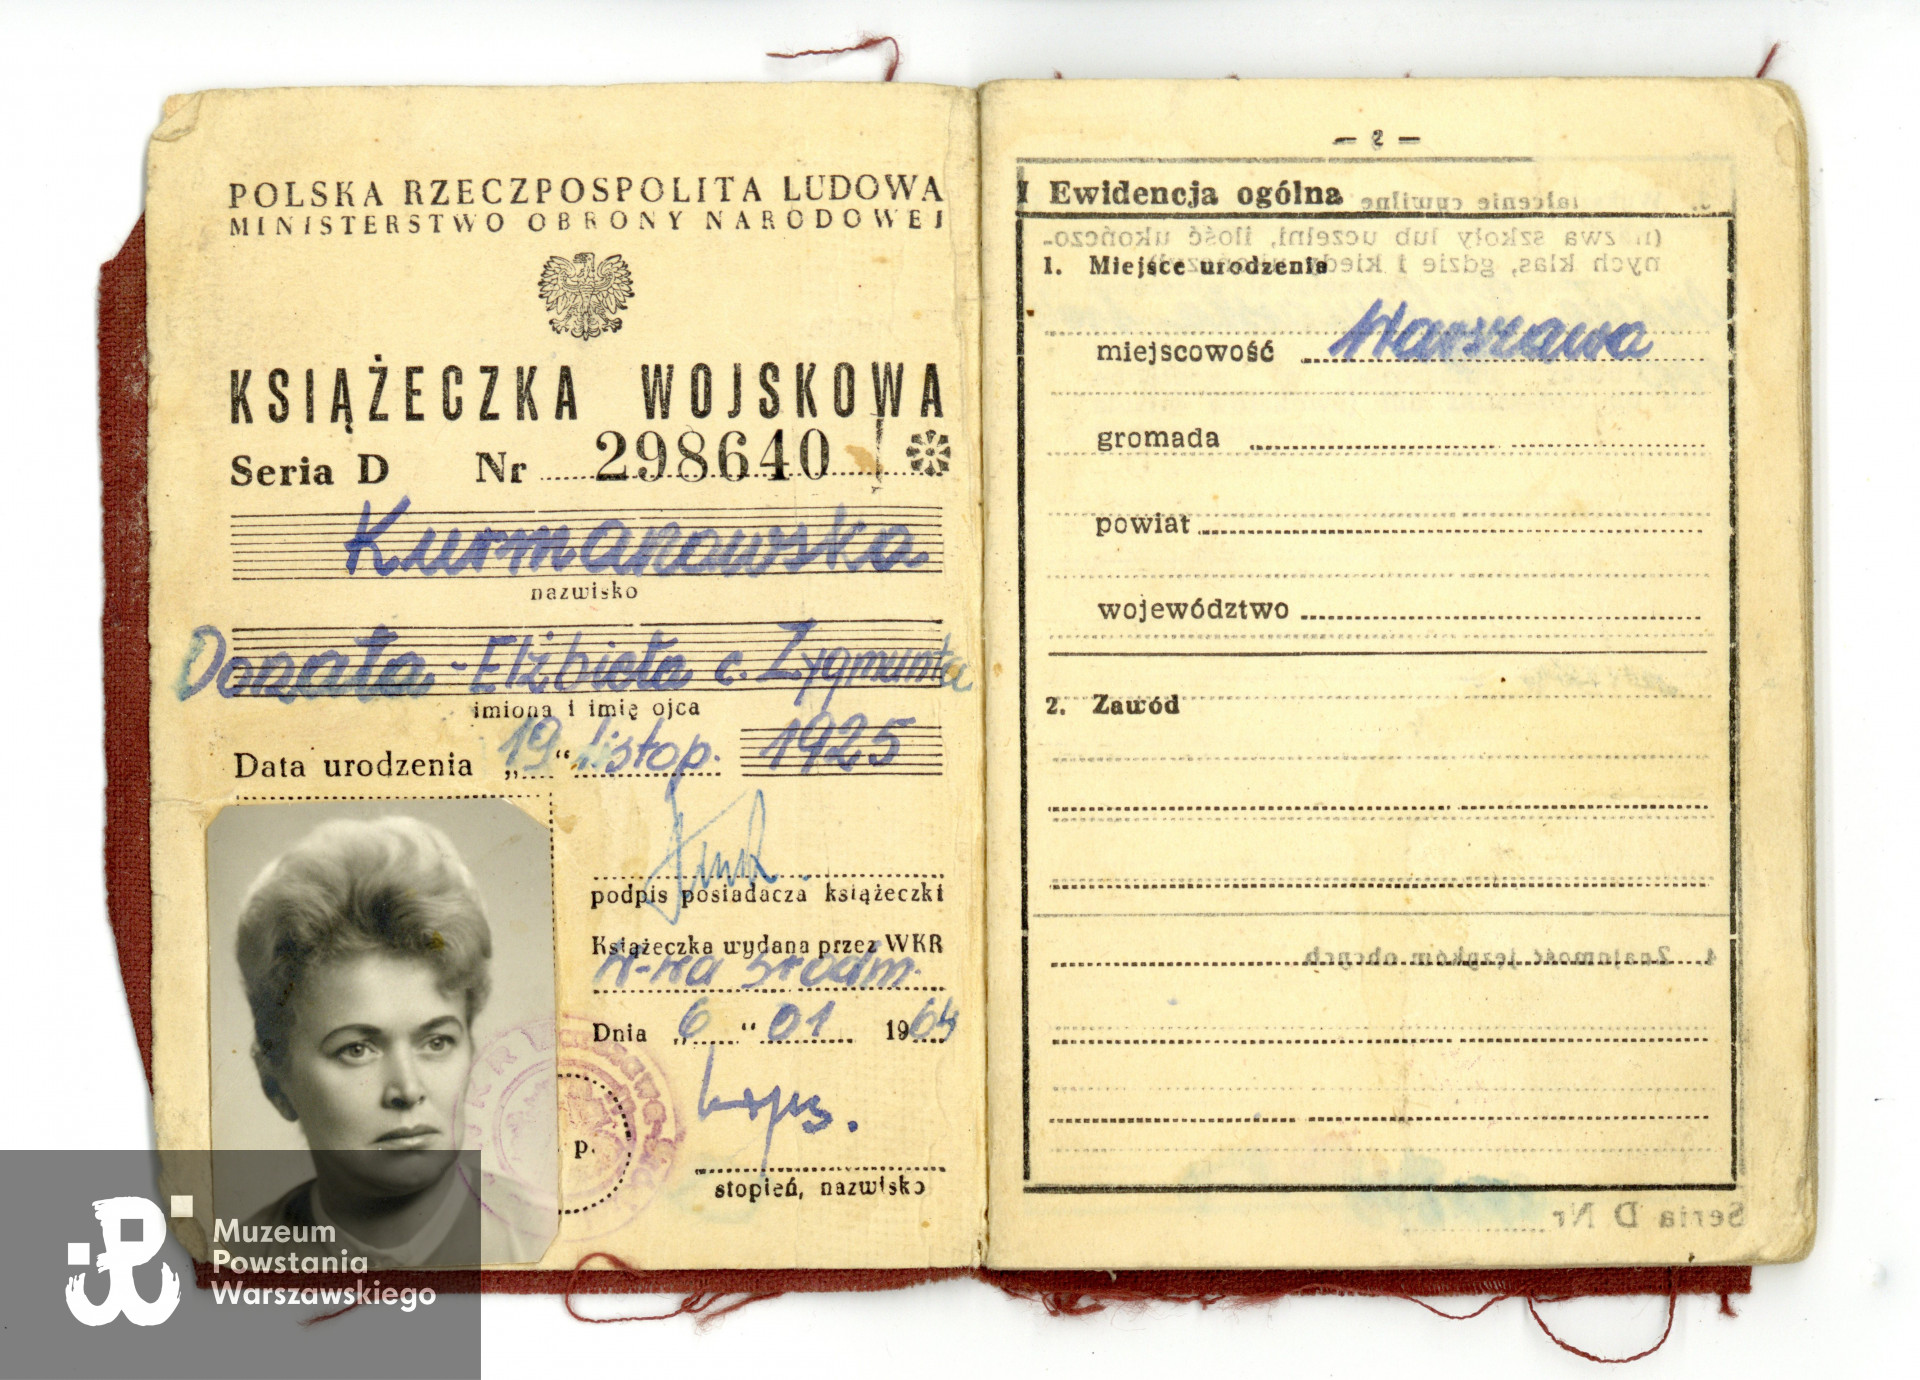 POLSKA RZECZPOSPOLITA LUDOWA
MINISTERSTWO OBRONY NARODOWEJ
KSIĄŻECZKA WOJSKOWA
Seria D Nr 298640
Kurmanowska
nazwisko
Donata - Elżbieta c. Zygmunta
imiona i imię ojca
Data urodzenia „19“ listop. 1925
podpis posiadacza książeczki
Książeczka wydana przez WKR
W-wa Śródm.
Dnia „6“ 01 1964
p.
stopień, nazwisko
Muzeum
Powstania
Warszawskiego
— 2 —
I Ewidencja ogólna
1. Miejsce urodzenia
miejscowość Warszawa
gromada
powiat
województwo
2. Zawód
4. Znajomość języków obcych
Seria D Nr